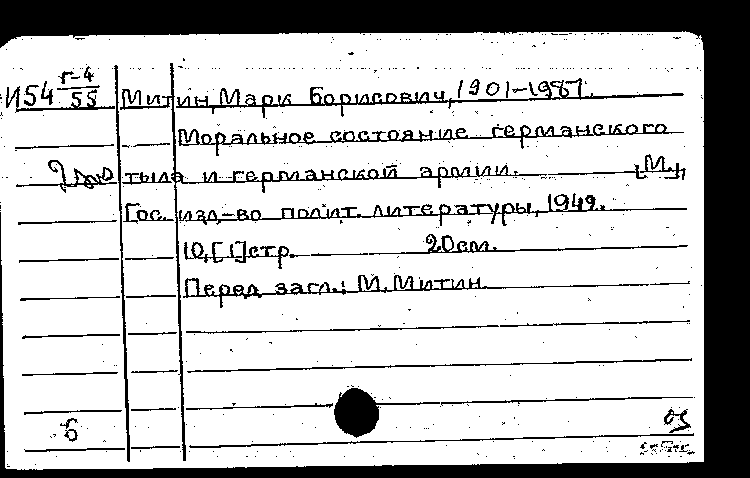 И54 г-4/55 Митин, Марк Борисович, 1901-1987.
Моральное состояние германского
2экз тыла и германской армии. [М.],
Гос. изд-во полит. литературы, 1942.
10,[1]стр. 20см.
Перед загл.: М. Митин.
Б